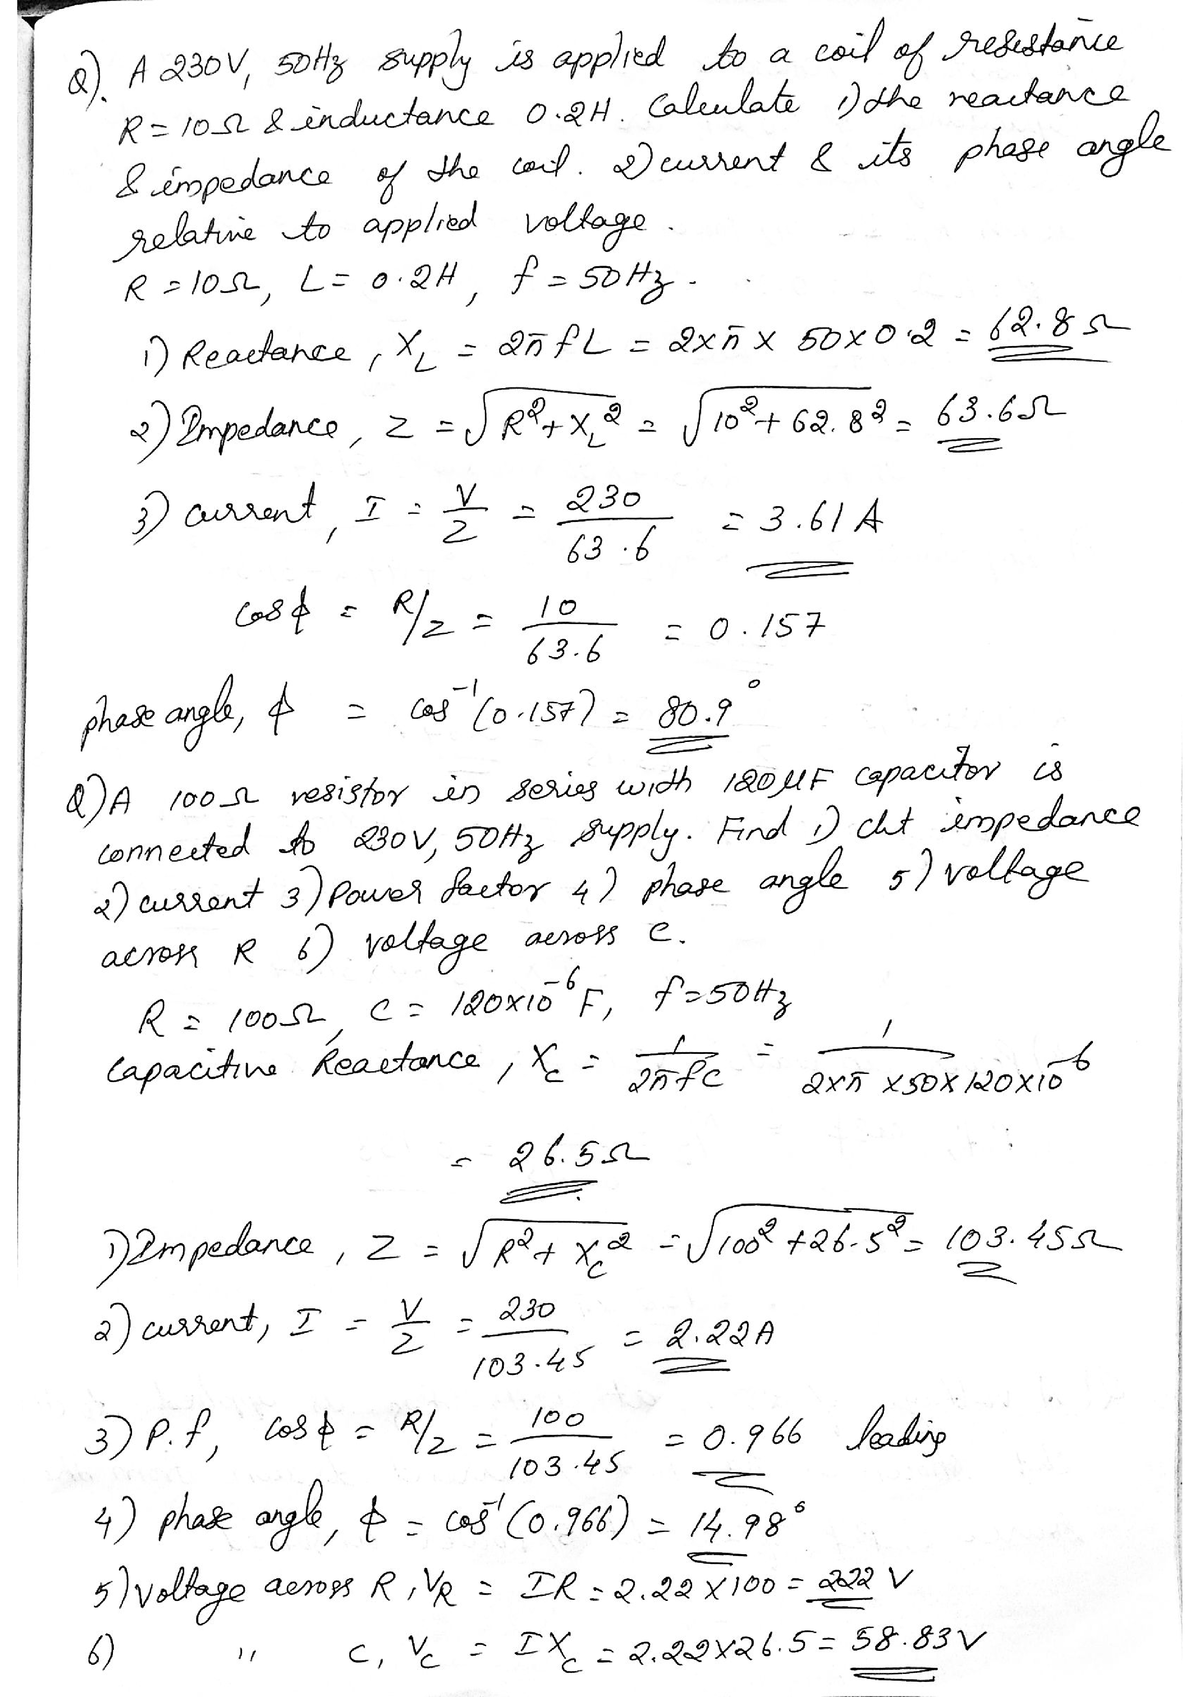 Q). A 230V, 50Hz supply is applied to a coil of resistance
R = 10Ω & inductance 0.2H. Calculate 1) the reactance
& impedance of the coil. 2) current & its phase angle
relative to applied voltage.
R = 10Ω, L = 0.2H, f = 50Hz.
1) Reactance, X_L = 2πfL = 2×π × 50×0.2 = 62.8Ω
2) Impedance, Z = √(R²+X_L²) = √(10²+62.8²) = 63.6Ω
3) current, I = V/Z = 230/63.6 = 3.61A
cosϕ = R/Z = 10/63.6 = 0.157
phase angle, ϕ = cos⁻¹(0.157) = 80.9°
Q) A 100Ω resistor in series with 120μF capacitor is
connected to 230V, 50Hz supply. Find 1) ckt impedance
2) current 3) Power factor 4) phase angle 5) voltage
across R 6) voltage across C.
R = 100Ω, C = 120×10⁻⁶F, f=50Hz
Capacitive Reactance, X_C = 1/2πfC = 1/2×π×50×120×10⁻⁶
= 26.5Ω
1) Impedance, Z = √(R²+X_C²) = √(100²+26.5²) = 103.45Ω
2) current, I = V/Z = 230/103.45 = 2.22A
3) P.f, cosϕ = R/Z = 100/103.45 = 0.966 leading
4) phase angle, ϕ = cos⁻¹(0.966) = 14.98°
5) voltage across R, VR = IR = 2.22×100 = 222 V
6) " C, V_C = IX_C = 2.22×26.5 = 58.83V